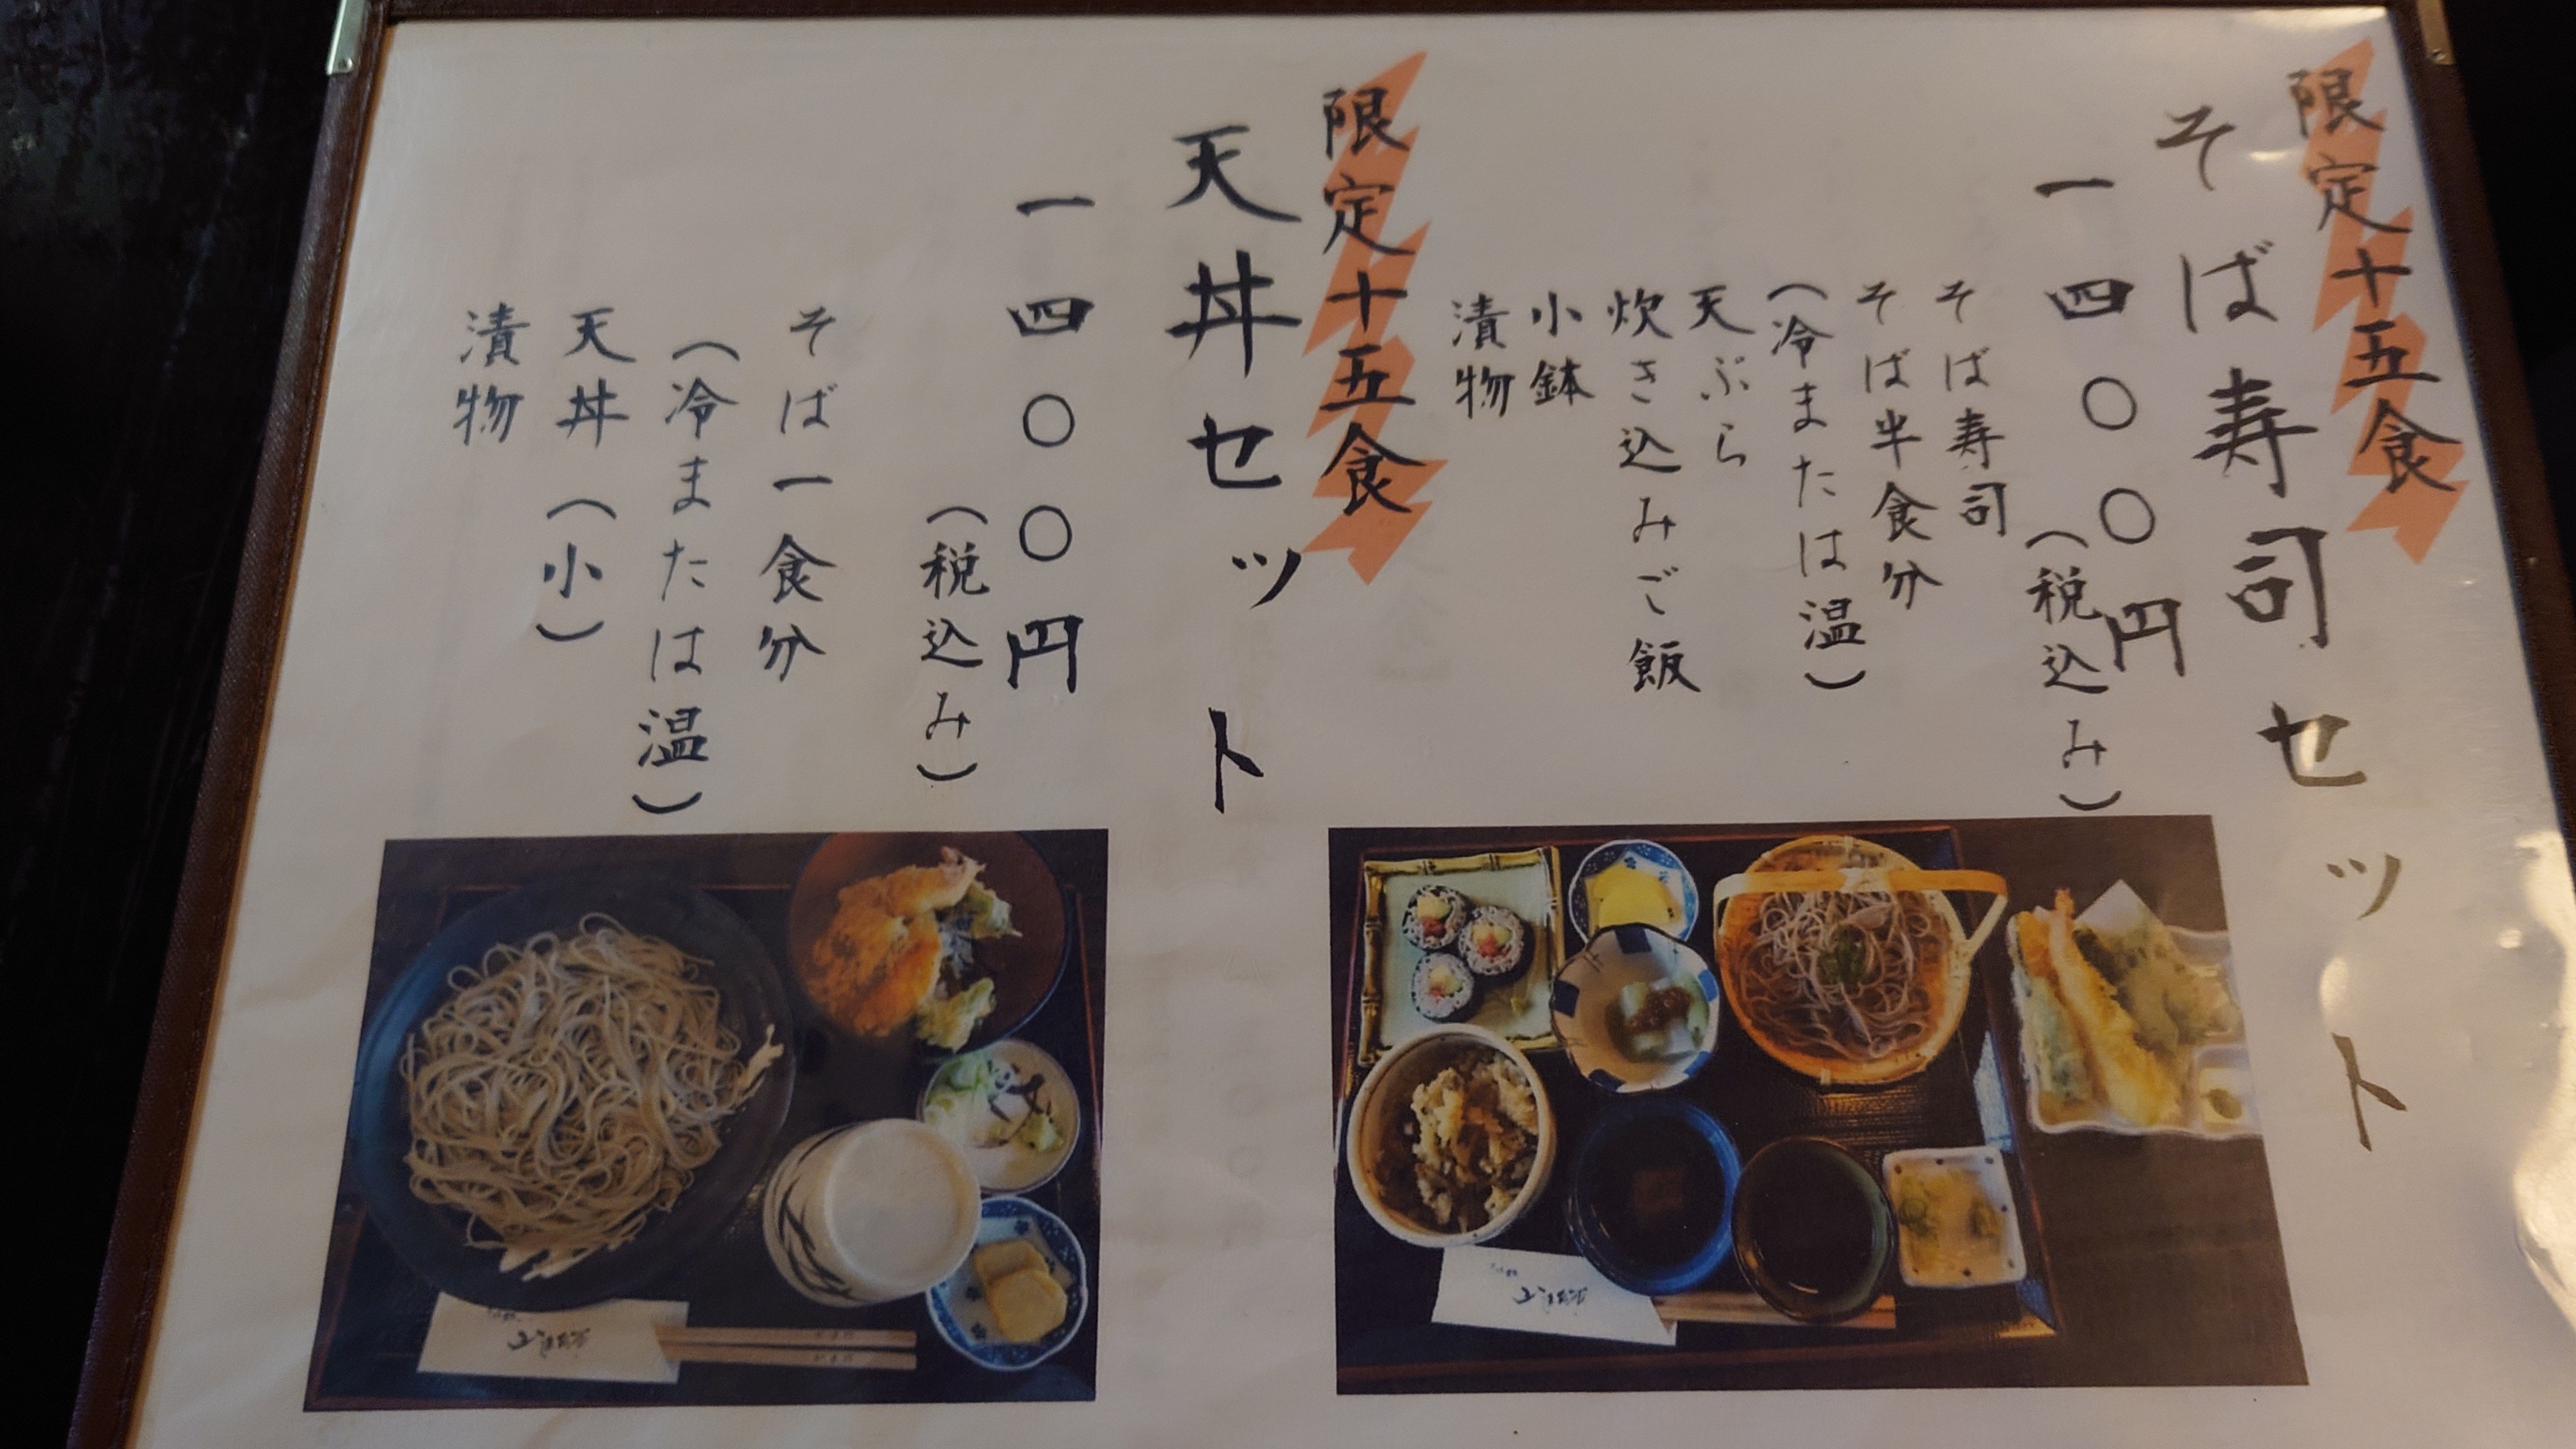 限定十五食
そば寿司セット
一四〇〇円
（税込み）
そば寿司
そば半食分
（冷または温）
天ぷら
炊き込みご飯
小鉢
漬物
限定十五食
天丼セット
一四〇〇円
（税込み）
そば一食分
（冷または温）
天丼（小）
漬物